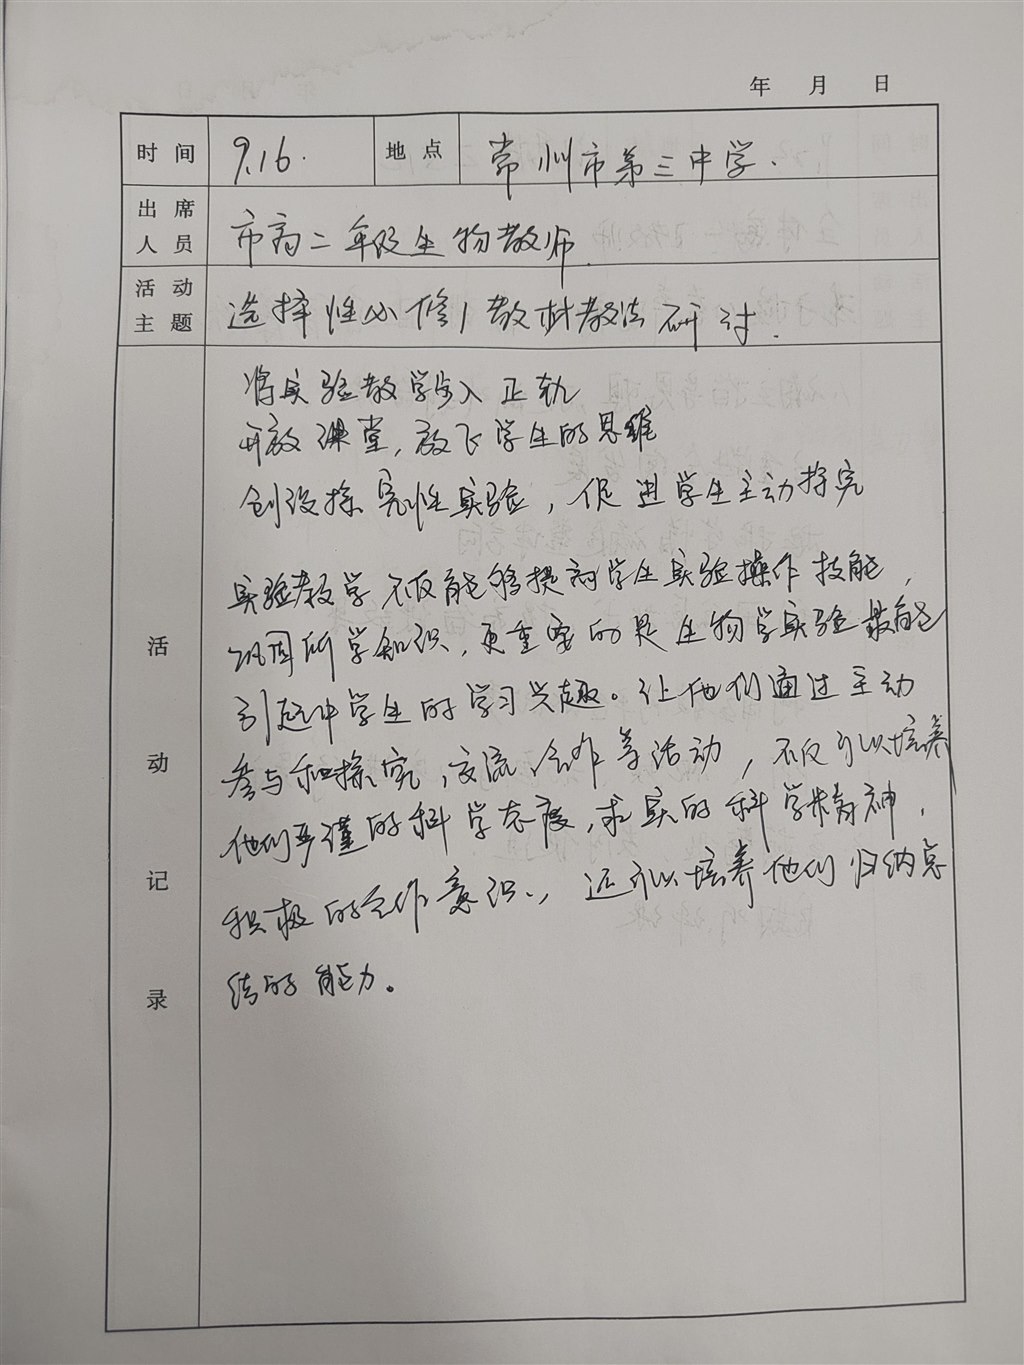 年 月 日
时间 9.16. 地点 常州市第三中学.
出席人员 市高二年级生物教师.
活动主题 选择性必修1教材教法研讨.
活动记录
将实验教学步入正轨
开放课堂,放飞学生的思维
创设探究性实验,促进学生主动探究
实验教学不仅能够提高学生实验操作技能,
巩固所学知识,更重要的是生物学实验最能
引起中学生的学习兴趣。让他们通过主动
参与和探究、交流、合作等活动,不仅可以培养
他们严谨的科学态度,求实的科学精神,
积极的合作意识,还可以培养他们归纳总
结的能力。